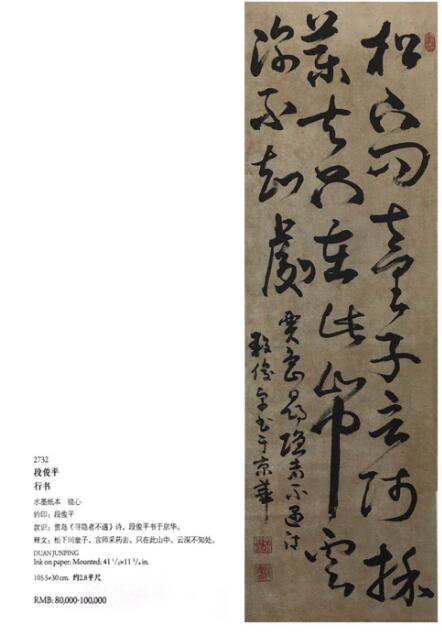 松下问童子言师採
药去只在此山中云
深不知处
贾岛寻隐者不遇诗
段俊平书于京华
2732
段俊平
行书
水墨纸本 镜心
钤印：段俊平
款识：贾岛《寻隐者不遇》诗，段俊平书于京华。
释文：松下问童子，言师采药去。只在此山中，云深不知处。
DUAN JUNPING
Ink on paper; Mounted; 41 1/2×11 3/4 in.
105.5×30 cm. 约2.8平尺
RMB: 80,000-100,000